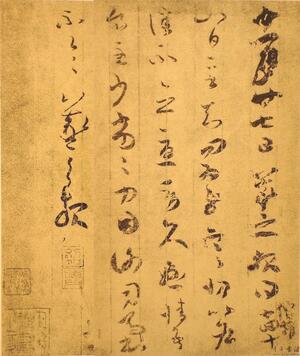 十一月廿七日羲之報得十四十
八日二書知問為慰寒切比各
佳不念憂勞久懸情吾
食甚少劣劣力因謝司馬書
不一一羲之報